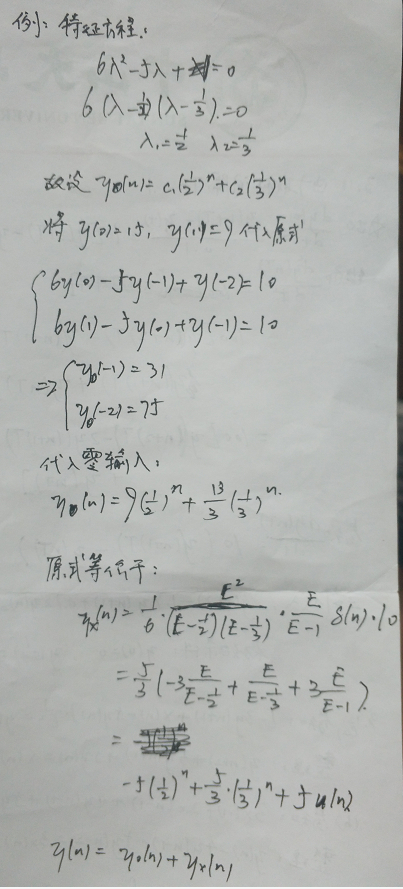 例1: 特征方程:
6λ²-5λ+1=0
6(λ-1/2)(λ-1/3)=0
λ₁=1/2 λ₂=1/3
故设 y₀(n)=c₁(1/2)ⁿ+c₂(1/3)ⁿ
将 y(0)=15, y(1)=9 代入原式
{6y(0)-5y(-1)+y(-2)=10
6y(1)-5y(0)+y(-1)=10
=> {y₀(-1)=31
y₀(-2)=75
代入零输入:
y₀(n)=9(1/2)ⁿ+13/3(1/3)ⁿ.
原式等价于:
yₓ(n)=1/6·E²/((E-1/2)(E-1/3))·E/(E-1) δ(n)·10
=5/3(-3 E/(E-1/2)+E/(E-1/3)+3 E/(E-1))
=
-5(1/2)ⁿ+5/3·(1/3)ⁿ+5u(n)
y(n)=y₀(n)+yₓ(n)